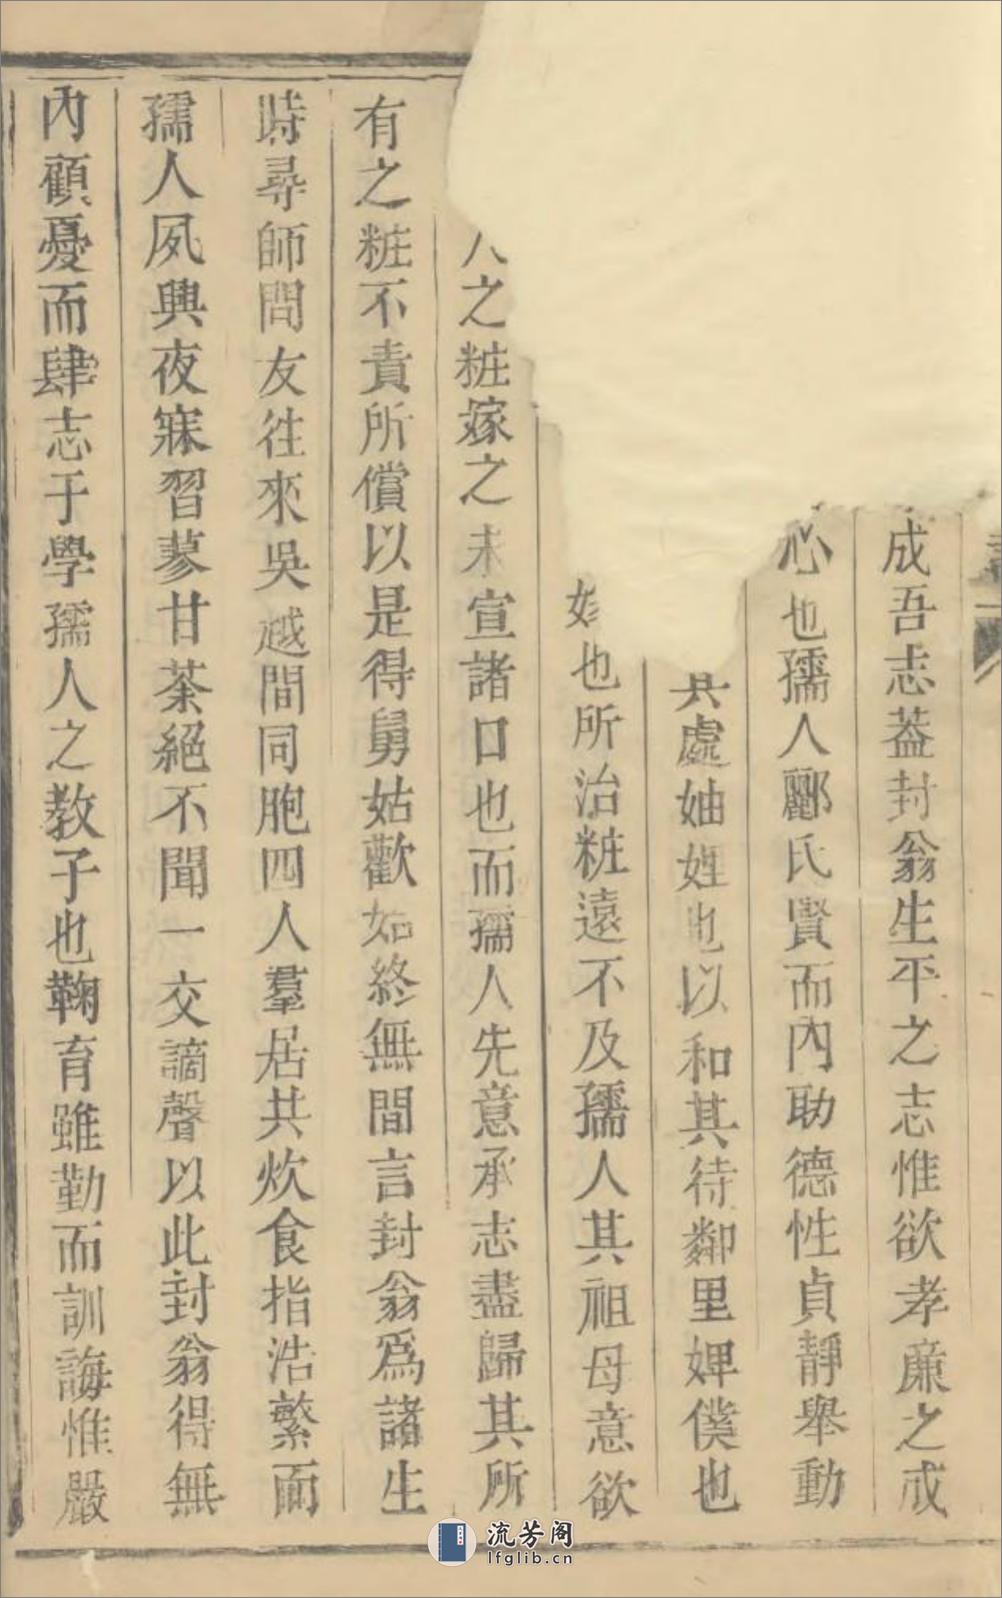 成吾志葢封翁生平之志惟欲孝廉之成
心也孺人酈氏賢而內助德性貞靜舉動
其處妯姓也以和其待鄰里婢僕也
也所治粧遠不及孺人其祖母意欲
人之粧嫁之未宣諸口也而孺人先意承志盡歸其所
有之粧不責所償以是得舅姑歡始終無間言封翁爲諸生
時尋師問友往來吳越間同胞四人羣居共炊食指浩繁而
孺人夙興夜寐習蓼甘荼絕不聞一交謫聲以此封翁得無
內顧憂而肆志于學孺人之教子也鞠育雖勤而訓誨惟嚴
流芳阁
lfglib.cn